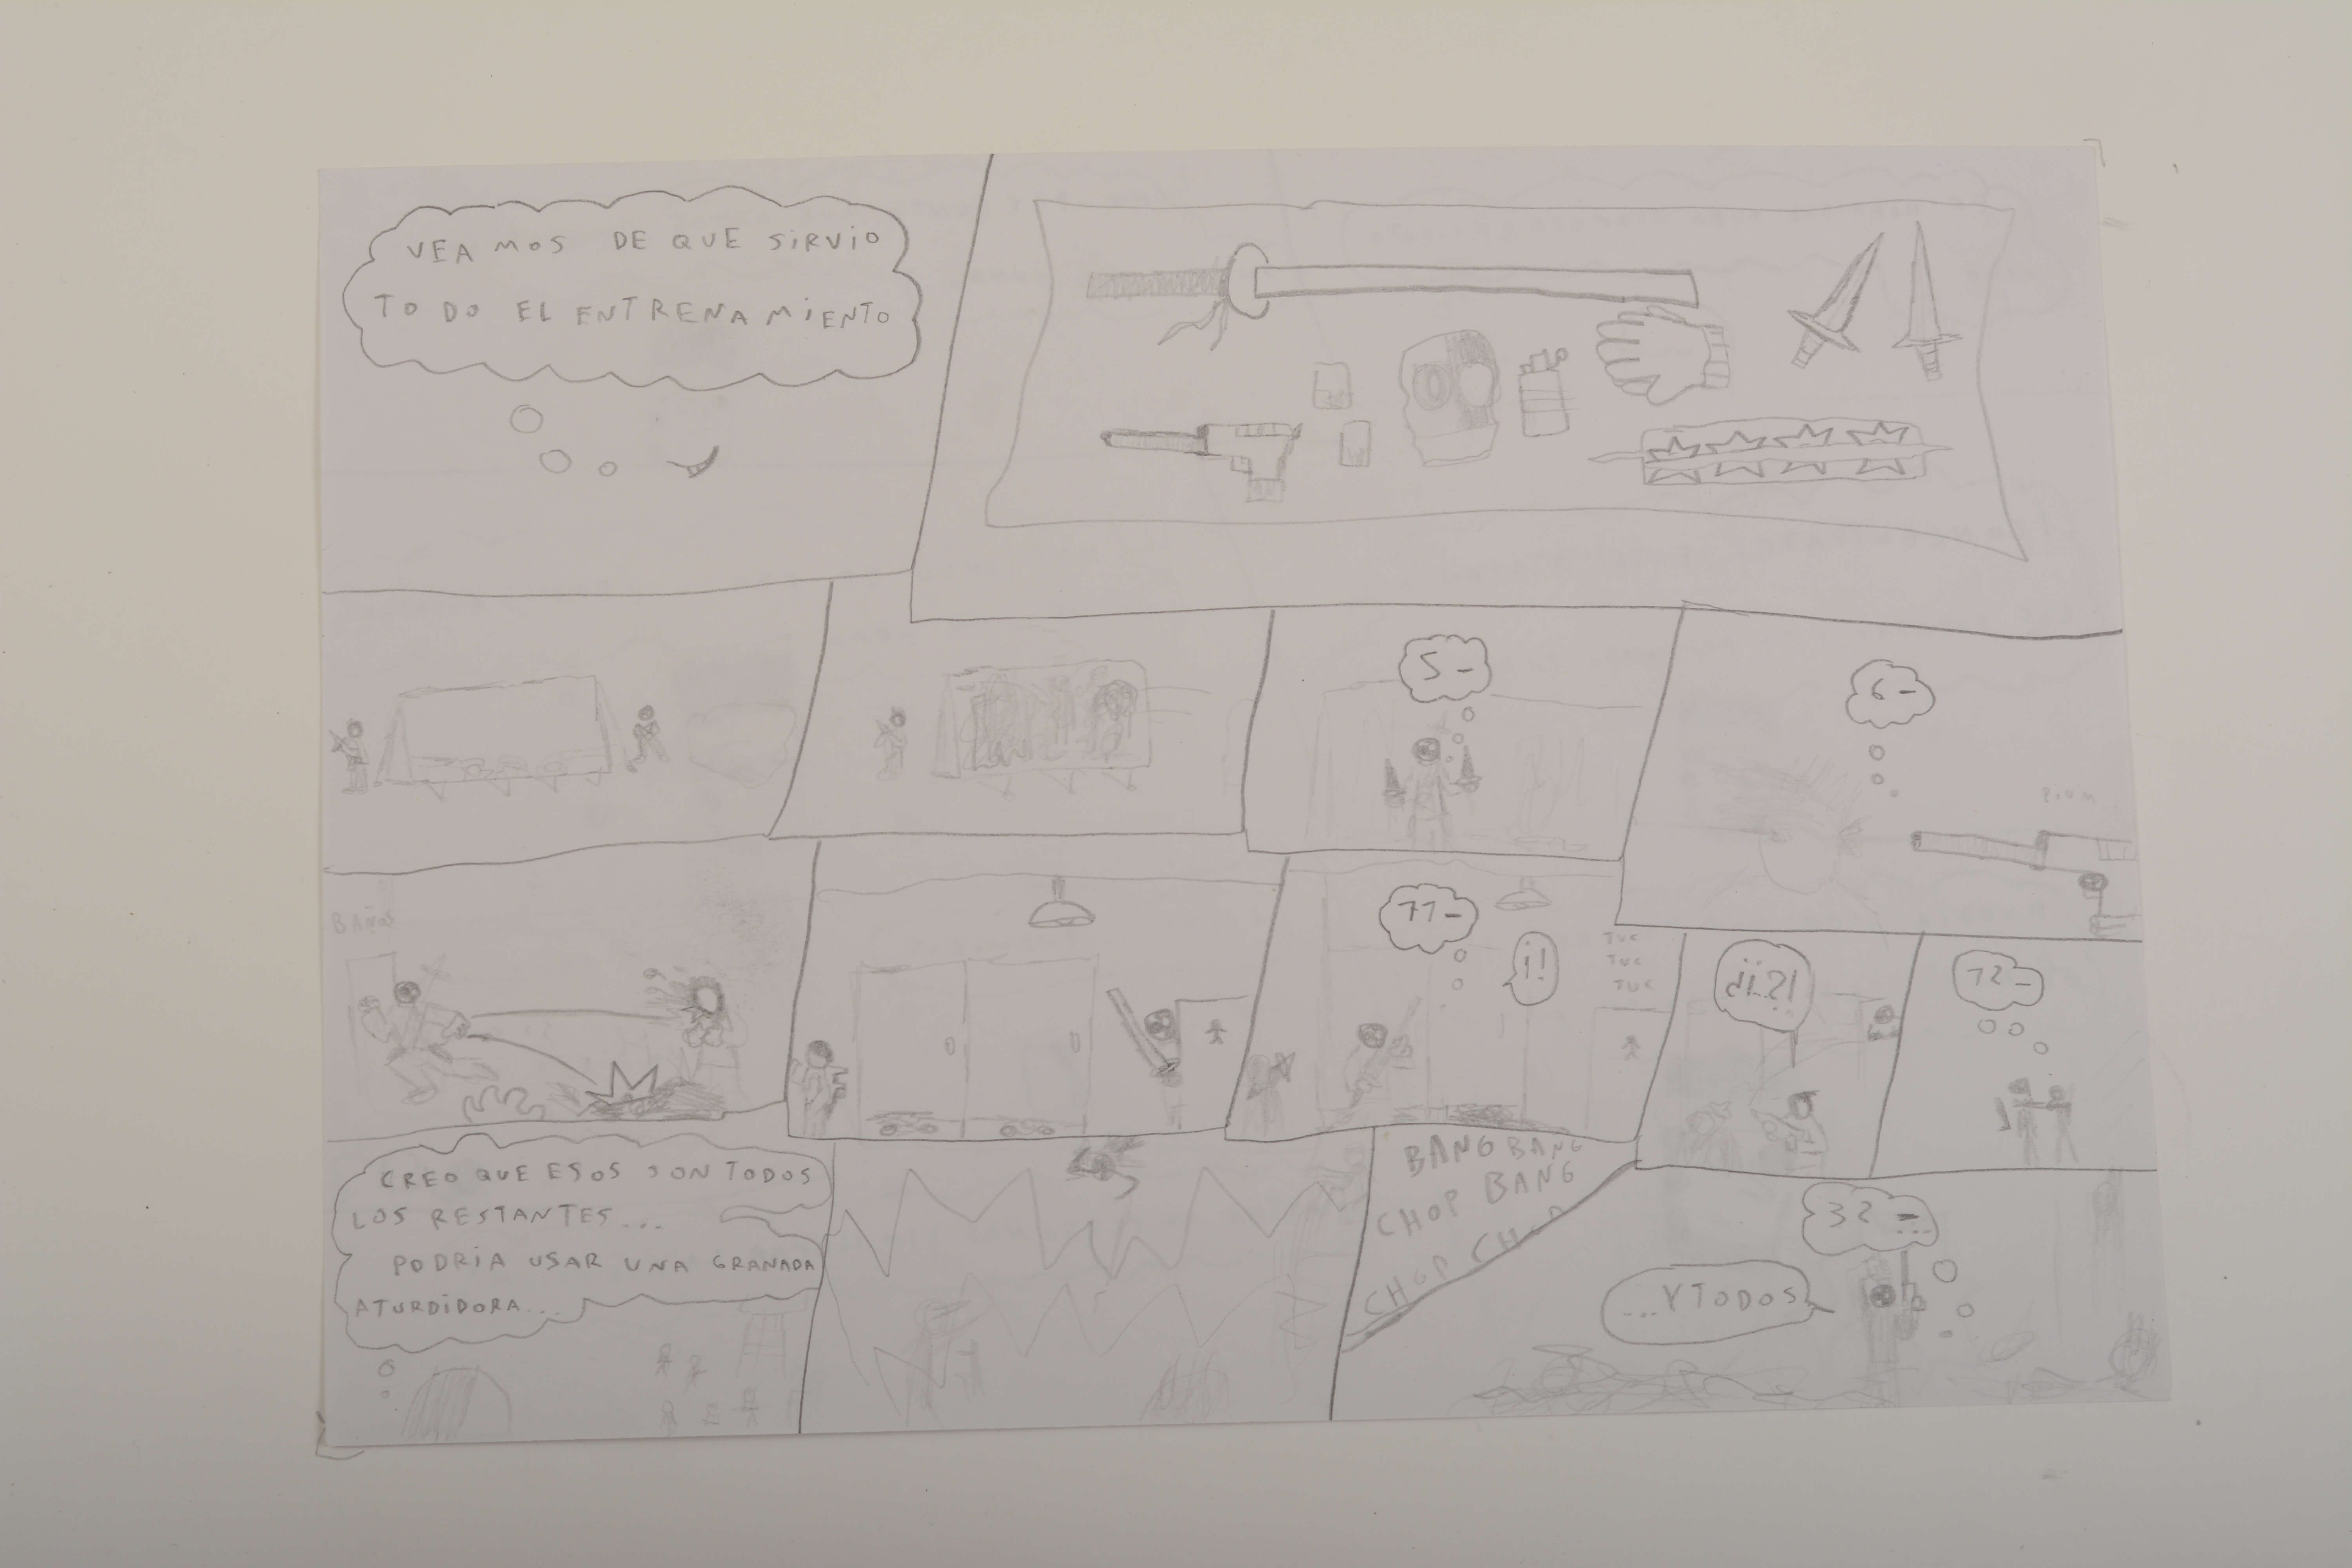 VEAMOS DE QUE SiRViO
TODO EL ENTRENAMiENTO
5-
6-
PIUM
BAÑOS
11-
¡!
TUC
TUC
TUC
¿¡¡?!
12-
CREO QUE ESOS SON TODOS
LOS RESTANTES...
PODRÍA USAR UNA GRANADA
ATURDiDORA...
BANG BANG
CHOP BANG
CHOP CHOP
32-...
...Y TODOS